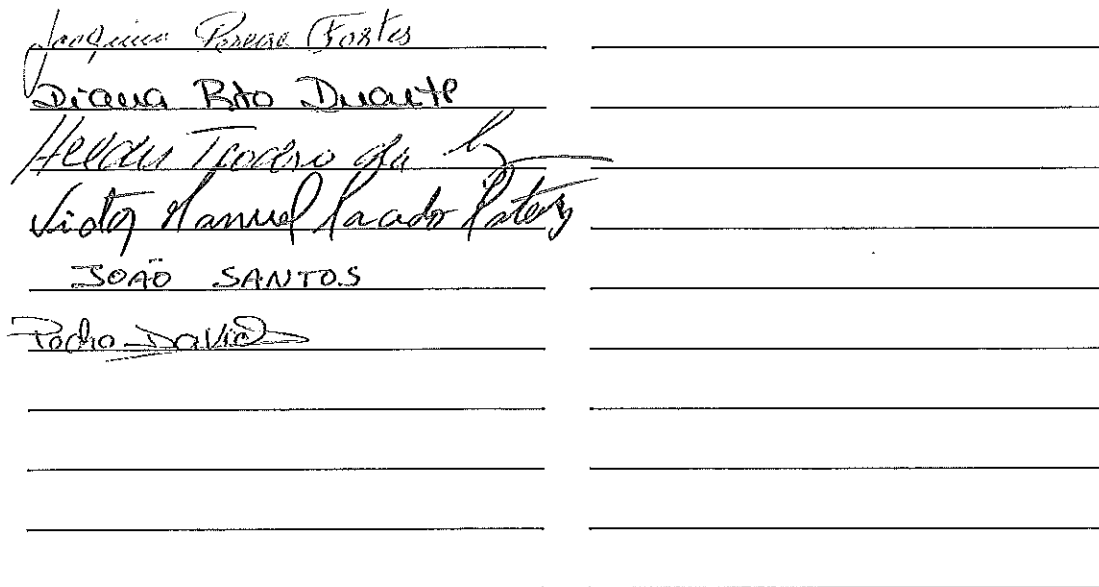 Joaquim Pereira Fortes
Diana Duarte
Helder Teodoro da
Victor Manuel
JOÃO SANTOS
Pedro David